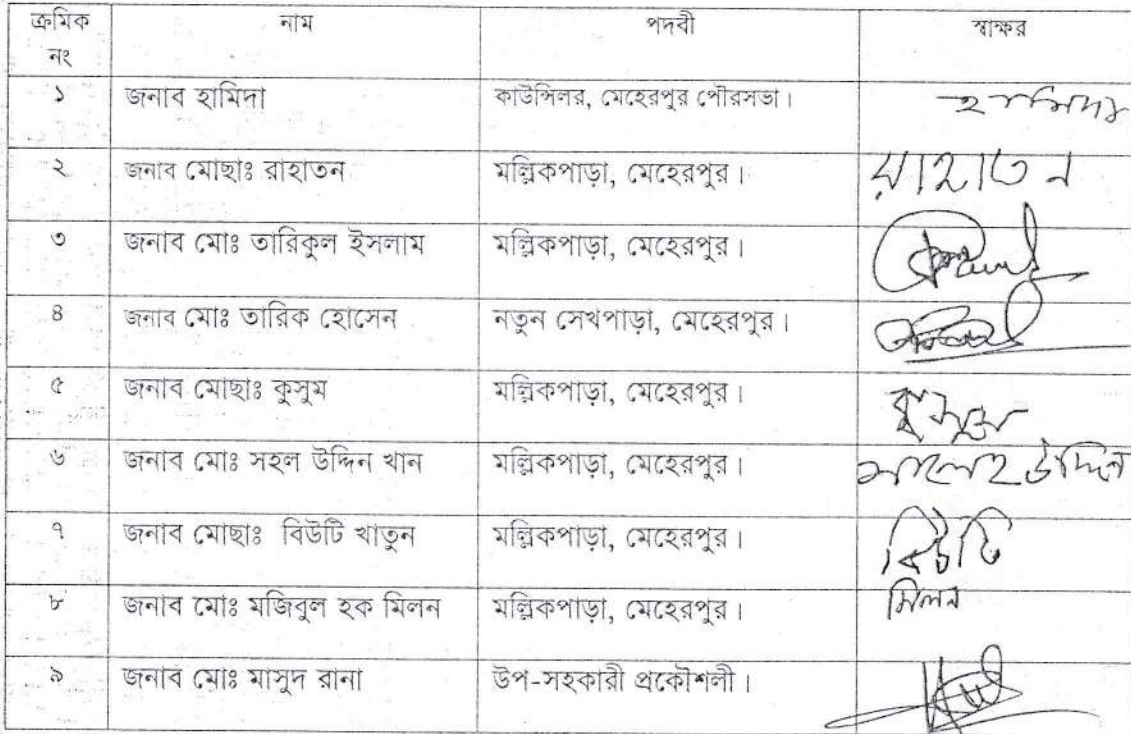 ক্রমিক নং নাম পদবী স্বাক্ষর
১ জনাব হামিদা কাউন্সিলর, মেহেরপুর পৌরসভা। হামিদা
২ জনাব মোছাঃ রাহাতন মল্লিকপাড়া, মেহেরপুর। রাহাতন
৩ জনাব মোঃ তারিকুল ইসলাম মল্লিকপাড়া, মেহেরপুর।
৪ জনাব মোঃ তারিক হোসেন নতুন সেখপাড়া, মেহেরপুর।
৫ জনাব মোছাঃ কুসুম মল্লিকপাড়া, মেহেরপুর। কুসুম
৬ জনাব মোঃ সহল উদ্দিন খান মল্লিকপাড়া, মেহেরপুর। সালেহ উদ্দিন
৭ জনাব মোছাঃ বিউটি খাতুন মল্লিকপাড়া, মেহেরপুর। বিউটি
৮ জনাব মোঃ মজিবুল হক মিলন মল্লিকপাড়া, মেহেরপুর। মিলন
৯ জনাব মোঃ মাসুদ রানা উপ-সহকারী প্রকৌশলী।